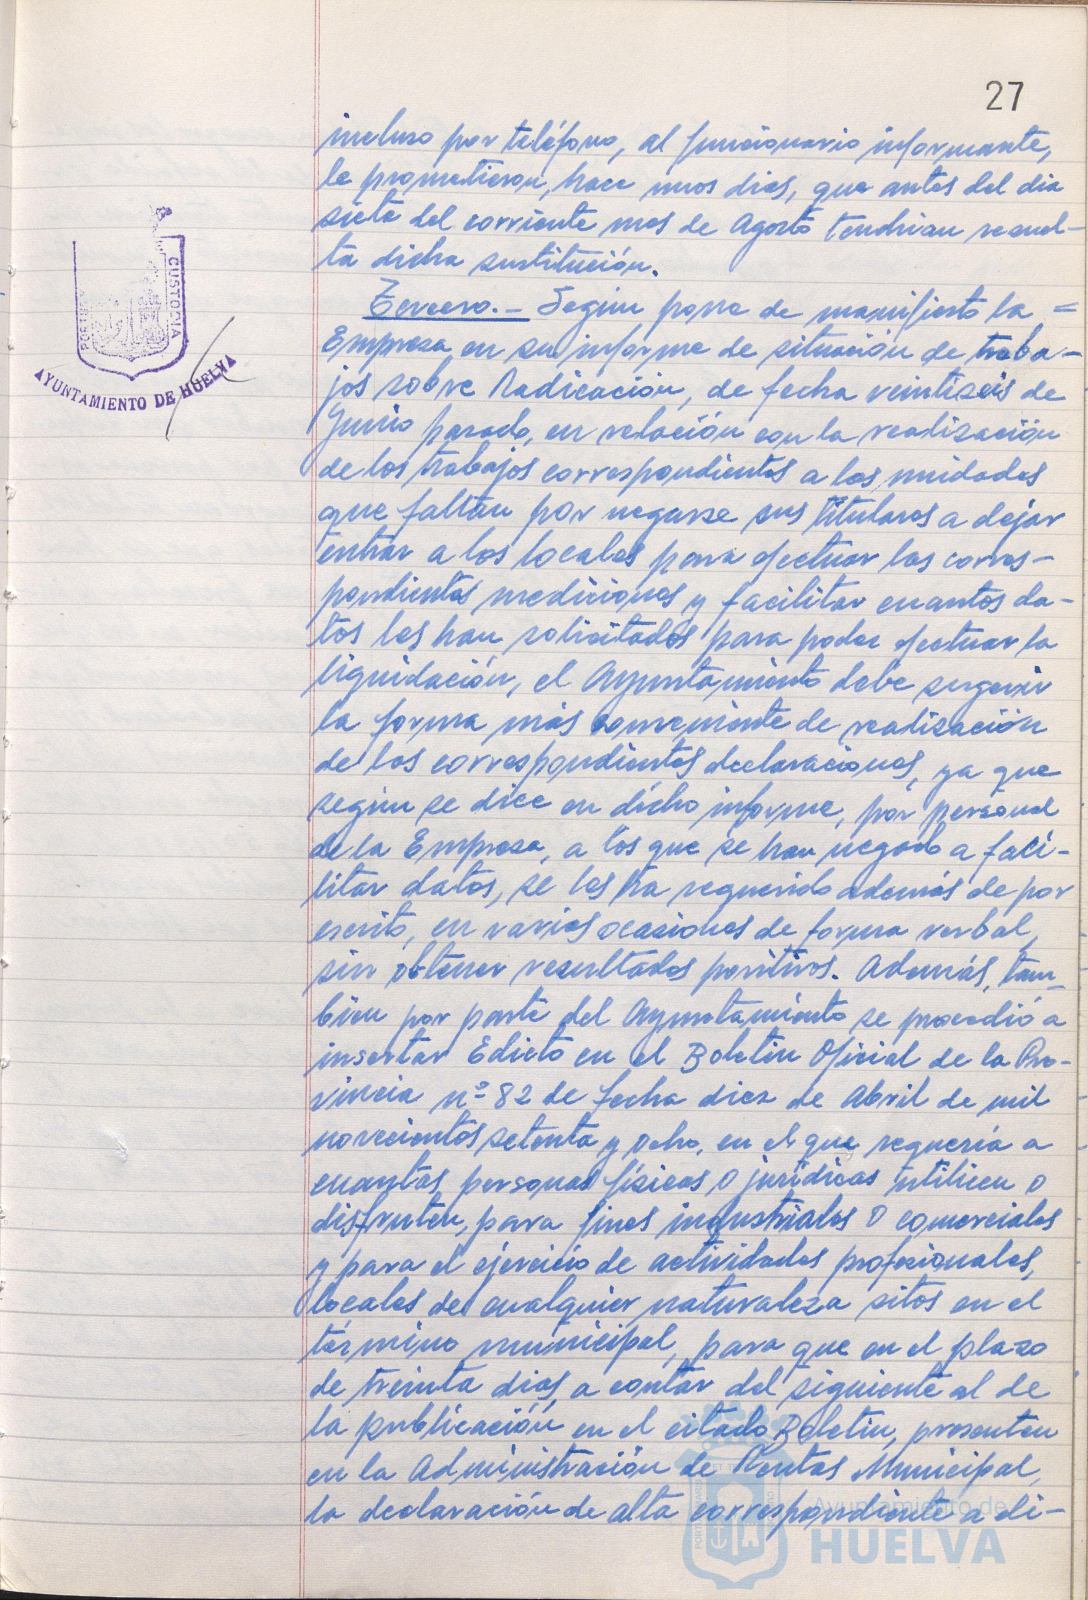 27
incluso por teléfono, al funcionario informante,
le prometieron, hace unos dias, que antes del dia
siete del corriente mes de Agosto tendrian resuel-
ta dicha sustitución.
Tercero.- Según pone de manifiesto la =
Empresa en su informe de situación de traba-
jos sobre Radicación, de fecha veintiseis de
Junio pasado, en relación con la realización
de los trabajos correspondientes a las unidades
que faltan por negarse sus titulares a dejar
entrar a los locales para efectuar las corres-
pondientes mediciones y facilitar cuantos da-
tos les han solicitados para poder efectuar la
liquidación, el Ayuntamiento debe sugerir
la forma más conveniente de realización
de las correspondientes declaraciones, ya que
según se dice en dicho informe, por personal
de la Empresa, a los que se han negado a faci-
litar datos, se les ha requerido además de por
escrito, en varias ocasiones de forma verbal,
sin obtener resultados positivos. Además, tam-
bien por parte del Ayuntamiento se procedió a
insertar Edicto en el Boletin Oficial de la Pro-
vincia nº 82 de fecha diez de Abril de mil
novecientos setenta y ocho, en el que requeria a
cuantas personas físicas o jurídicas utilicen o
disfruten, para fines industriales o comerciales
y para el ejercicio de actividades profesionales,
locales de cualquier naturaleza sitos en el
término municipal, para que en el plazo
de treinta dias a contar del siguiente al de
la publicación en el citado Boletin, presenten
en la Administración de Rentas Municipal,
la declaración de alta correspondiente a di-
CUSTODIA
AYUNTAMIENTO DE HUELVA
Ayuntamiento de
HUELVA